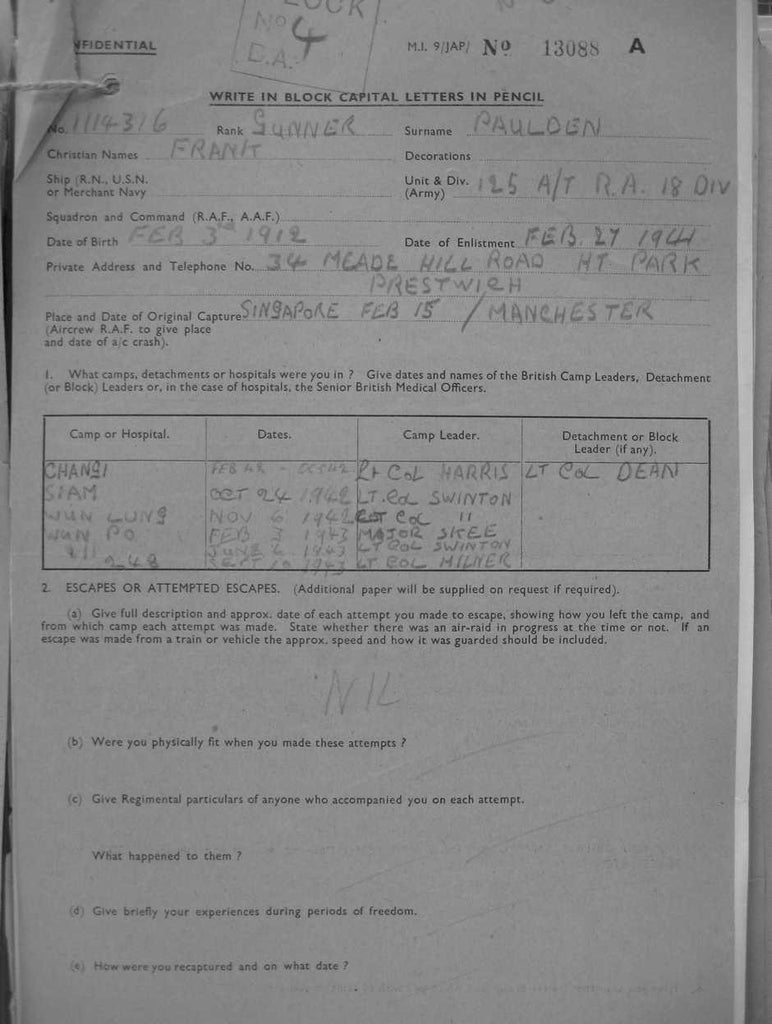 OCK
No 4
D.A.
FIDENTIAL
M.I. 9/JAP/ No 13088 A
WRITE IN BLOCK CAPITAL LETTERS IN PENCIL
No. 1114316 Rank GUNNER Surname PAULDEN
Christian Names FRANK Decorations
Ship (R.N., U.S.N. or Merchant Navy Unit & Div. (Army) 125 A/T R.A. 18 DIV
Squadron and Command (R.A.F., A.A.F.)
Date of Birth FEB 3rd 1912 Date of Enlistment FEB. 27 1941
Private Address and Telephone No. 34 MEADE HILL ROAD HT PARK
PRESTWICH
Place and Date of Original Capture SINGAPORE FEB 15 / MANCHESTER
(Aircrew R.A.F. to give place
and date of a/c crash).
1. What camps, detachments or hospitals were you in ? Give dates and names of the British Camp Leaders, Detachment
(or Block) Leaders or, in the case of hospitals, the Senior British Medical Officers.
Camp or Hospital. Dates. Camp Leader. Detachment or Block
Leader (if any).
CHANGI FEB 42 - OCT 42 Lt COL HARRIS LT COL DEAN
SIAM OCT 24 1942 LT. COL SWINTON
WUN LUNG NOV 6 1942 COL "
WUN PO FEB 3 1943 MAJOR SKEE
JUNE 6 1943 LT COL SWINTON
SEPT 10 1943 LT COL MILNER
2. ESCAPES OR ATTEMPTED ESCAPES. (Additional paper will be supplied on request if required).
(a) Give full description and approx. date of each attempt you made to escape, showing how you left the camp, and
from which camp each attempt was made. State whether there was an air-raid in progress at the time or not. If an
escape was made from a train or vehicle the approx. speed and how it was guarded should be included.
NIL
(b) Were you physically fit when you made these attempts ?
(c) Give Regimental particulars of anyone who accompanied you on each attempt.
What happened to them ?
(d) Give briefly your experiences during periods of freedom.
(e) How were you recaptured and on what date ?